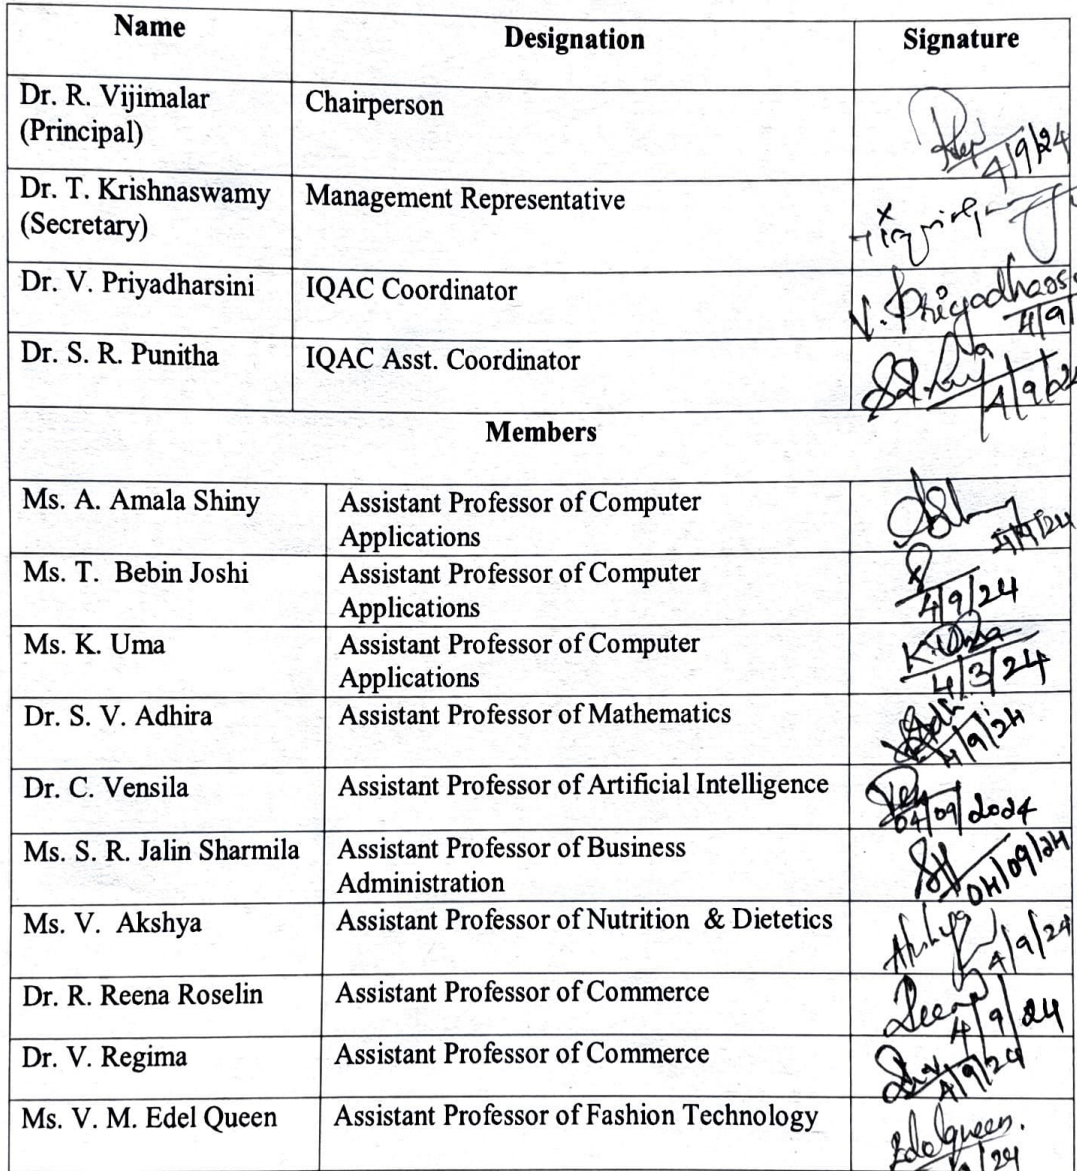 Name Designation Signature
Dr. R. Vijimalar Chairperson
(Principal)
4/9/24
Dr. T. Krishnaswamy Management Representative
(Secretary)
Dr. V. Priyadharsini IQAC Coordinator V. Priyadhars
4/9/
Dr. S. R. Punitha IQAC Asst. Coordinator
4/9/24
Members
Ms. A. Amala Shiny Assistant Professor of Computer
Applications
4/9/24
Ms. T. Bebin Joshi Assistant Professor of Computer
Applications
4/9/24
Ms. K. Uma Assistant Professor of Computer K. Uma
Applications
4/3/24
Dr. S. V. Adhira Assistant Professor of Mathematics
4/9/24
Dr. C. Vensila Assistant Professor of Artificial Intelligence
04/09/2024
Ms. S. R. Jalin Sharmila Assistant Professor of Business
Administration
04/09/24
Ms. V. Akshya Assistant Professor of Nutrition & Dietetics Akshya
4/9/24
Dr. R. Reena Roselin Assistant Professor of Commerce
4/9/24
Dr. V. Regima Assistant Professor of Commerce
4/9/24
Ms. V. M. Edel Queen Assistant Professor of Fashion Technology Edelqueen.
/24